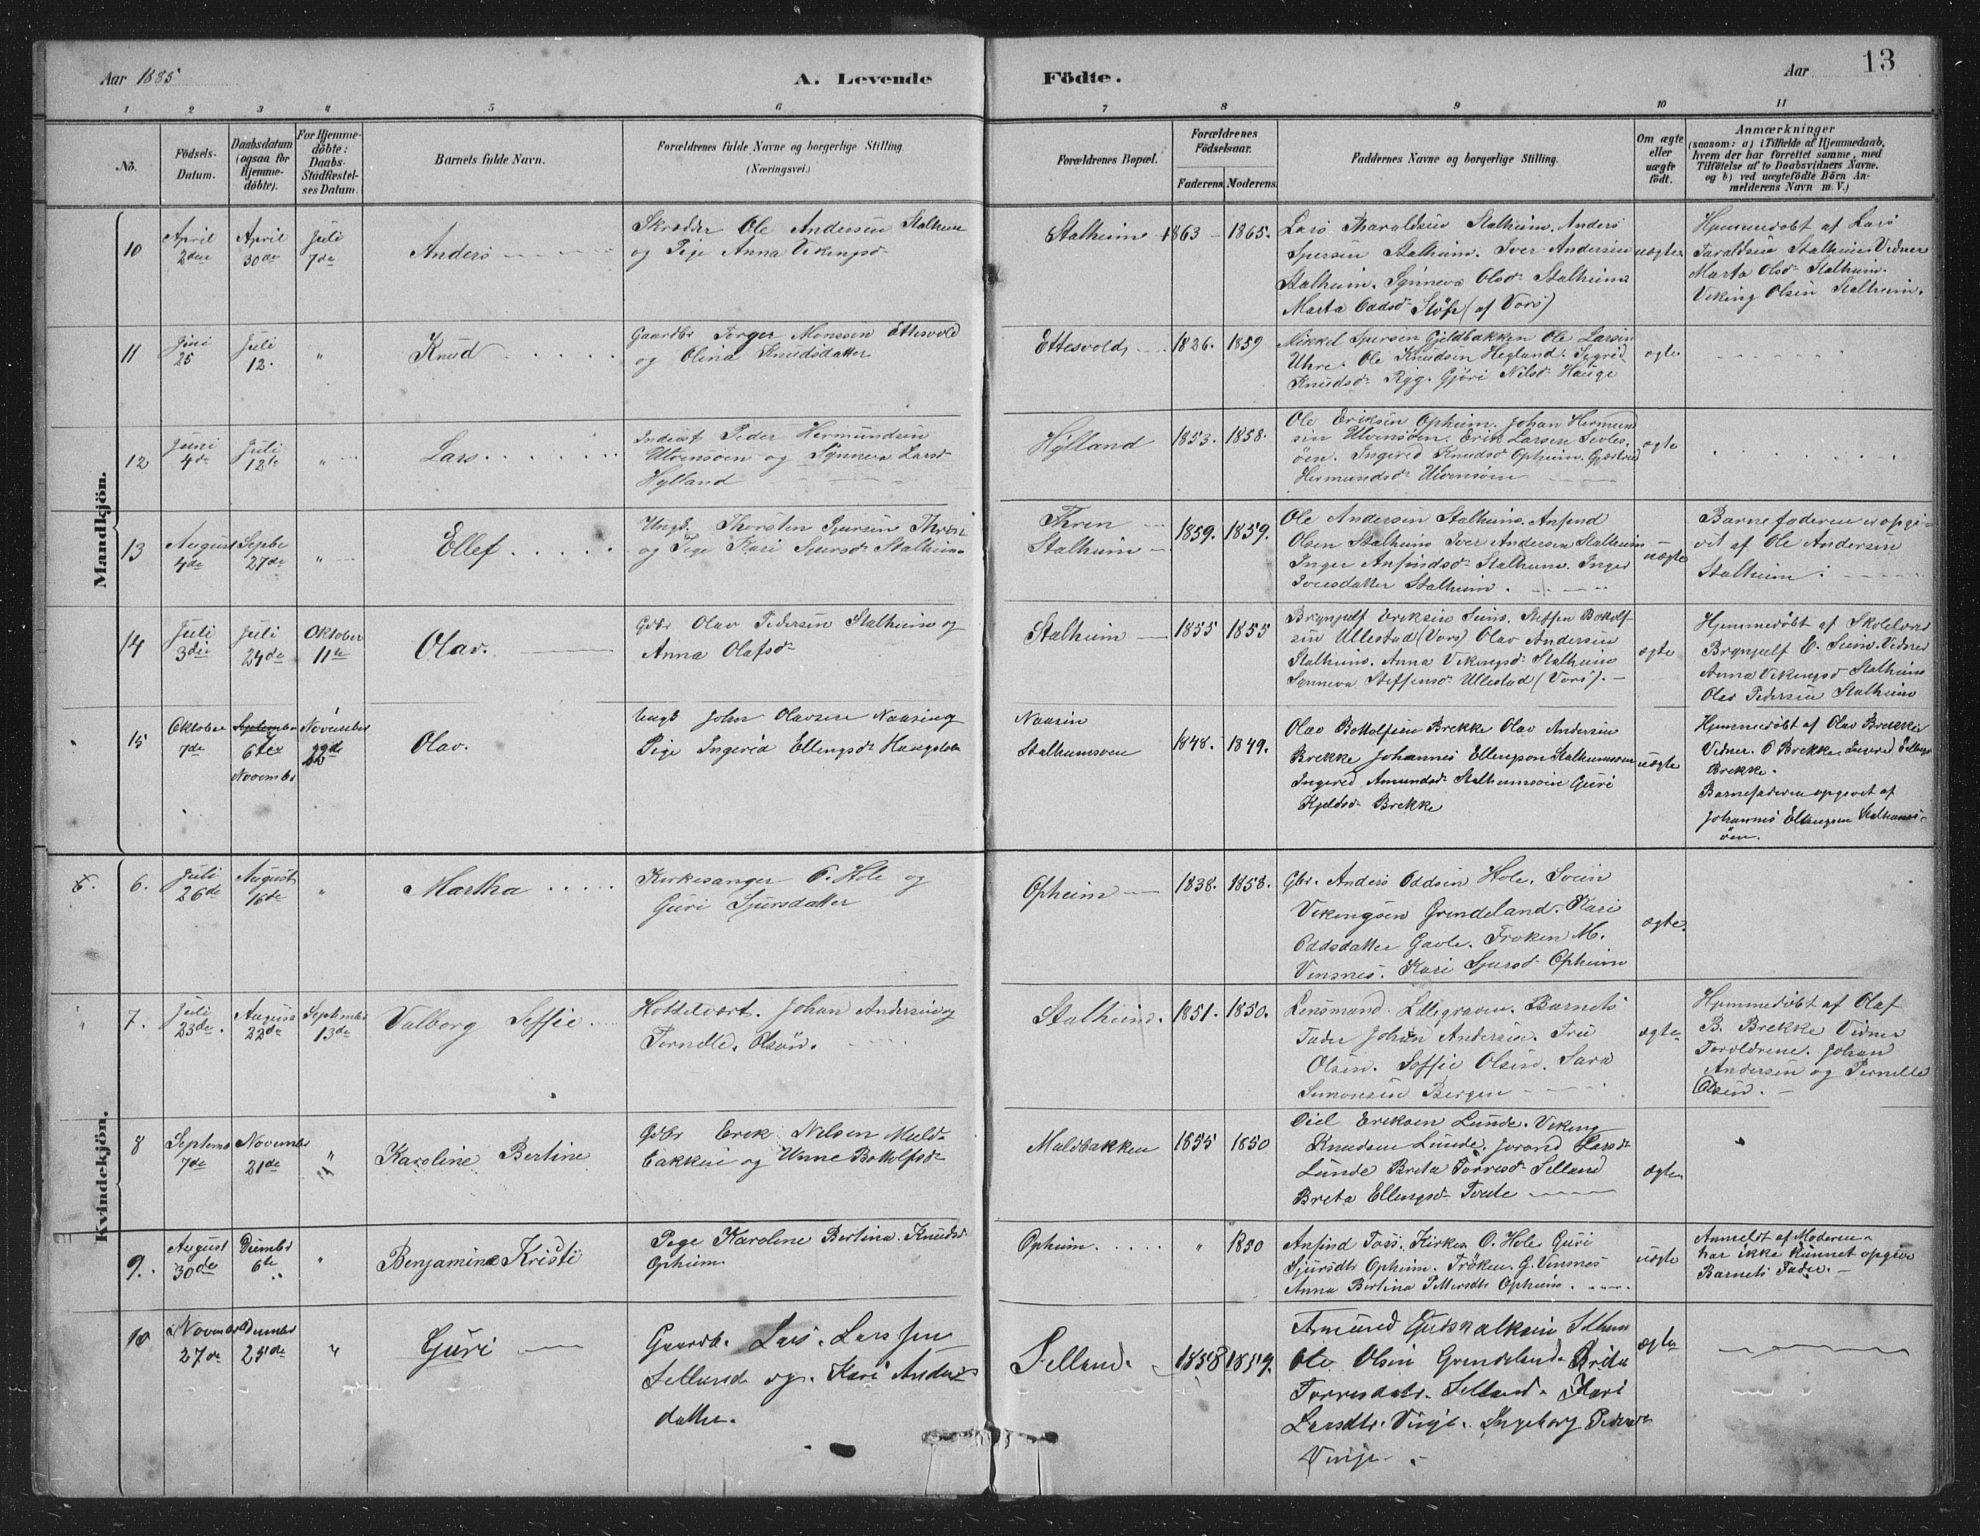 Aar 1885
A. Levende
Födte.
Aar
13
1
2
3
4
5
6
7
8
9
10
11
No.
Födsels-
Datum.
Daabsdatum
(ogsaa for
Hjemme-
döbte).
For Hjemme-
döbte:
Daabs-
Stadfæstel-
ses Datum.
Barnets fulde Navn.
Forældrenes fulde Navne og borgerlige Stilling
(Næringsvei.)
Forældrenes Bopæl.
Forældrenes
Födselsaar.
Faderens.
Moderens.
Faddernes Navne og borgerlige Stilling.
Om ægte
eller
uægte
födt.
Anmærkninger
(saasom: a) i Tilfælde af Hjemmedaab,
hvem der har forrettet samme, med
Tilföielse af to Daabsvidners Navne.
og b) ved uægtefödte Börn An-
melderens Navn m. V.)
Mandkjön.
10
April
2den
April
30de
Juli
7de
Anders
Skrædder Ole Andersen Stalheim
og Pige Anna Vikingsd.
Stalheim
1863
1865.
Lars Haraldsen Stalheim. Anders
Sjursen Stalheim. Iver Andersen
Stalheim. Synneva Olsd. Stalheim
Marta Oddsd. (af Vors)
uægte
Hjemmedøbt af Lars
Taraldsen Stalheim. Vidner
Marta Olsd. Stalheim.
Viking Olsen Stalheim.
11
Juni
25
Juli
12.
"
Knud
Gaardbr Torger Monssen Ettesvold
og Olina Knudsdatter
Ettesvold
1826.
1859
Mikkel Sjursen Gjeldbakken Ole Larsen
Uhre. Ole Knudsen Hegland. Sigrid
Knudsd. Ryg. Gjöri Nilsd. Hauge
ægte
12
Juni
4de
Juli
12te
"
Lars
Inderst Peder Hermundsen
Ulvensøen og Synneva Larsd.
Hylland
Hylland
1853.
1858.
Ole Eriksen Opheim. Johan Hermund
sen Ulvensøen. Erik Larsen
øen. Ingerid Knudsd Opheim.
Hermundsd Ulvensøen
ægte
13
August
4de
Septbe
27de
"
Ellef
Ungk. Thorsten Sjursen
og Pige Kari Sjursd. Stalheim
Stalheim
1859.
1859.
Ole Andersen Stalheim. Anfind
Olsen Stalheim Iver Andersen Stalheim
Inger Anfindsd. Stalheim. Inger
Iversdatter Stalheim.
uægte
Barnefaderen er opgi-
vet af Ole Andersen
Stalheim
14
Juli
3die
Juli
24de
Oktober
11te
Olav.
Gdbr Olav Pedersen Stalheim og
Anna Olafsd.
Stalheim
1855
1855
Brynjulf Eriksen Seim. Steffen Bottolf
sen Ullestad (Vors) Olav Andersen
Stalheim. Anna Vikingsd. Stalheim
Synneva Steffensd. Ullestad (Vors).
ægte
Hjemmedøbt af Skolelærer
Brynjulf E. Seim. Vidner
Anna Vikingsd Stalheim
Olav Pedersen Stalheim
15
Oktober
7de
September
6te
November
November
22de
Olav.
Ungk John Olavsen
Pige Ingerid Ellengsd.
1848.
1849.
Olav Bottolfsen Brekke Olav Andersen
Brekke Johannes Ellengsen
Ingerid Amundsd. Guri
Kjeldsd. Brekke
uægte
Hjemmedøbt af Olav Brekke
Vidner. O Brekke Ingerid
Brekke.
Barnefaderen opgevet af
Johannes Ellengsen Stalheims-
øen.
Kvindekjön.
6.
Juli
26de
August
16de
"
Martha
Kirkesanger O. Hole og
Guri Sjursdatter
Opheim
1838.
1858.
Gbr. Anders Oddsen Hole. Svein
Vikingsen Grindeland. Kari
Oddsdatter Gavle. Frøken M.
Vinsnes. Kari Sjursd Opheim
ægte.
7.
Juli
23de
August
22de
September
13de
Valborg Seffie
Hotelvært. Johan Andersen og
Pernelle. Olsen.
Stalheim.
1851.
1850.
Lensmand. Lilligraven. Barnets
Fader Johan Andersen. Fru
Olsen. Soffie Olsen. Sara
Simonsen Bergen
ægte
Hjemmedøbt af Olaf
B. Brekke Vidner
Forældrene. Johan
Andersen og Pernelle
Olsen.
8
Septembr
7de
November
21de
"
Karoline Bertine
Gdbr Erik Nilsen Muld-
bakken og Unne Bottolfsd.
Muldbakken
1855
1850
Eriksen Lunde. Viking
Knudsen Lunde, Jorand Larsd
Lunde Breta Torresd. Selland
Breta Ellengsd. Tveite
ægte
9.
August
30de
Dcember
6te
"
Benjamine Kristi
Pige Karoline Bertina. Knudsd
Opheim.
Opheim.
"
1850
Anfind Foss. Kirkes. O. Hole. Guri
Sjursdtr Opheim. Frøken. G. Vinsnes
Anna Bertina Opheim.
uægte
Anmeldt af Moderen
har ikke kunnet opgive
Barnets Fader.
10
November
27de
Dcember
25de
"
Guri
Gaardb. Lars. Larssen
Selland og. Kari Anders
datter.
Selland.
1858
1859.
Amund Gudvalksen
Ole Olsen Grindeland. Brita
Torresdatr. Selland. Kari
Larsdtr. Vinje. Ingeborg
Vinje
ægte